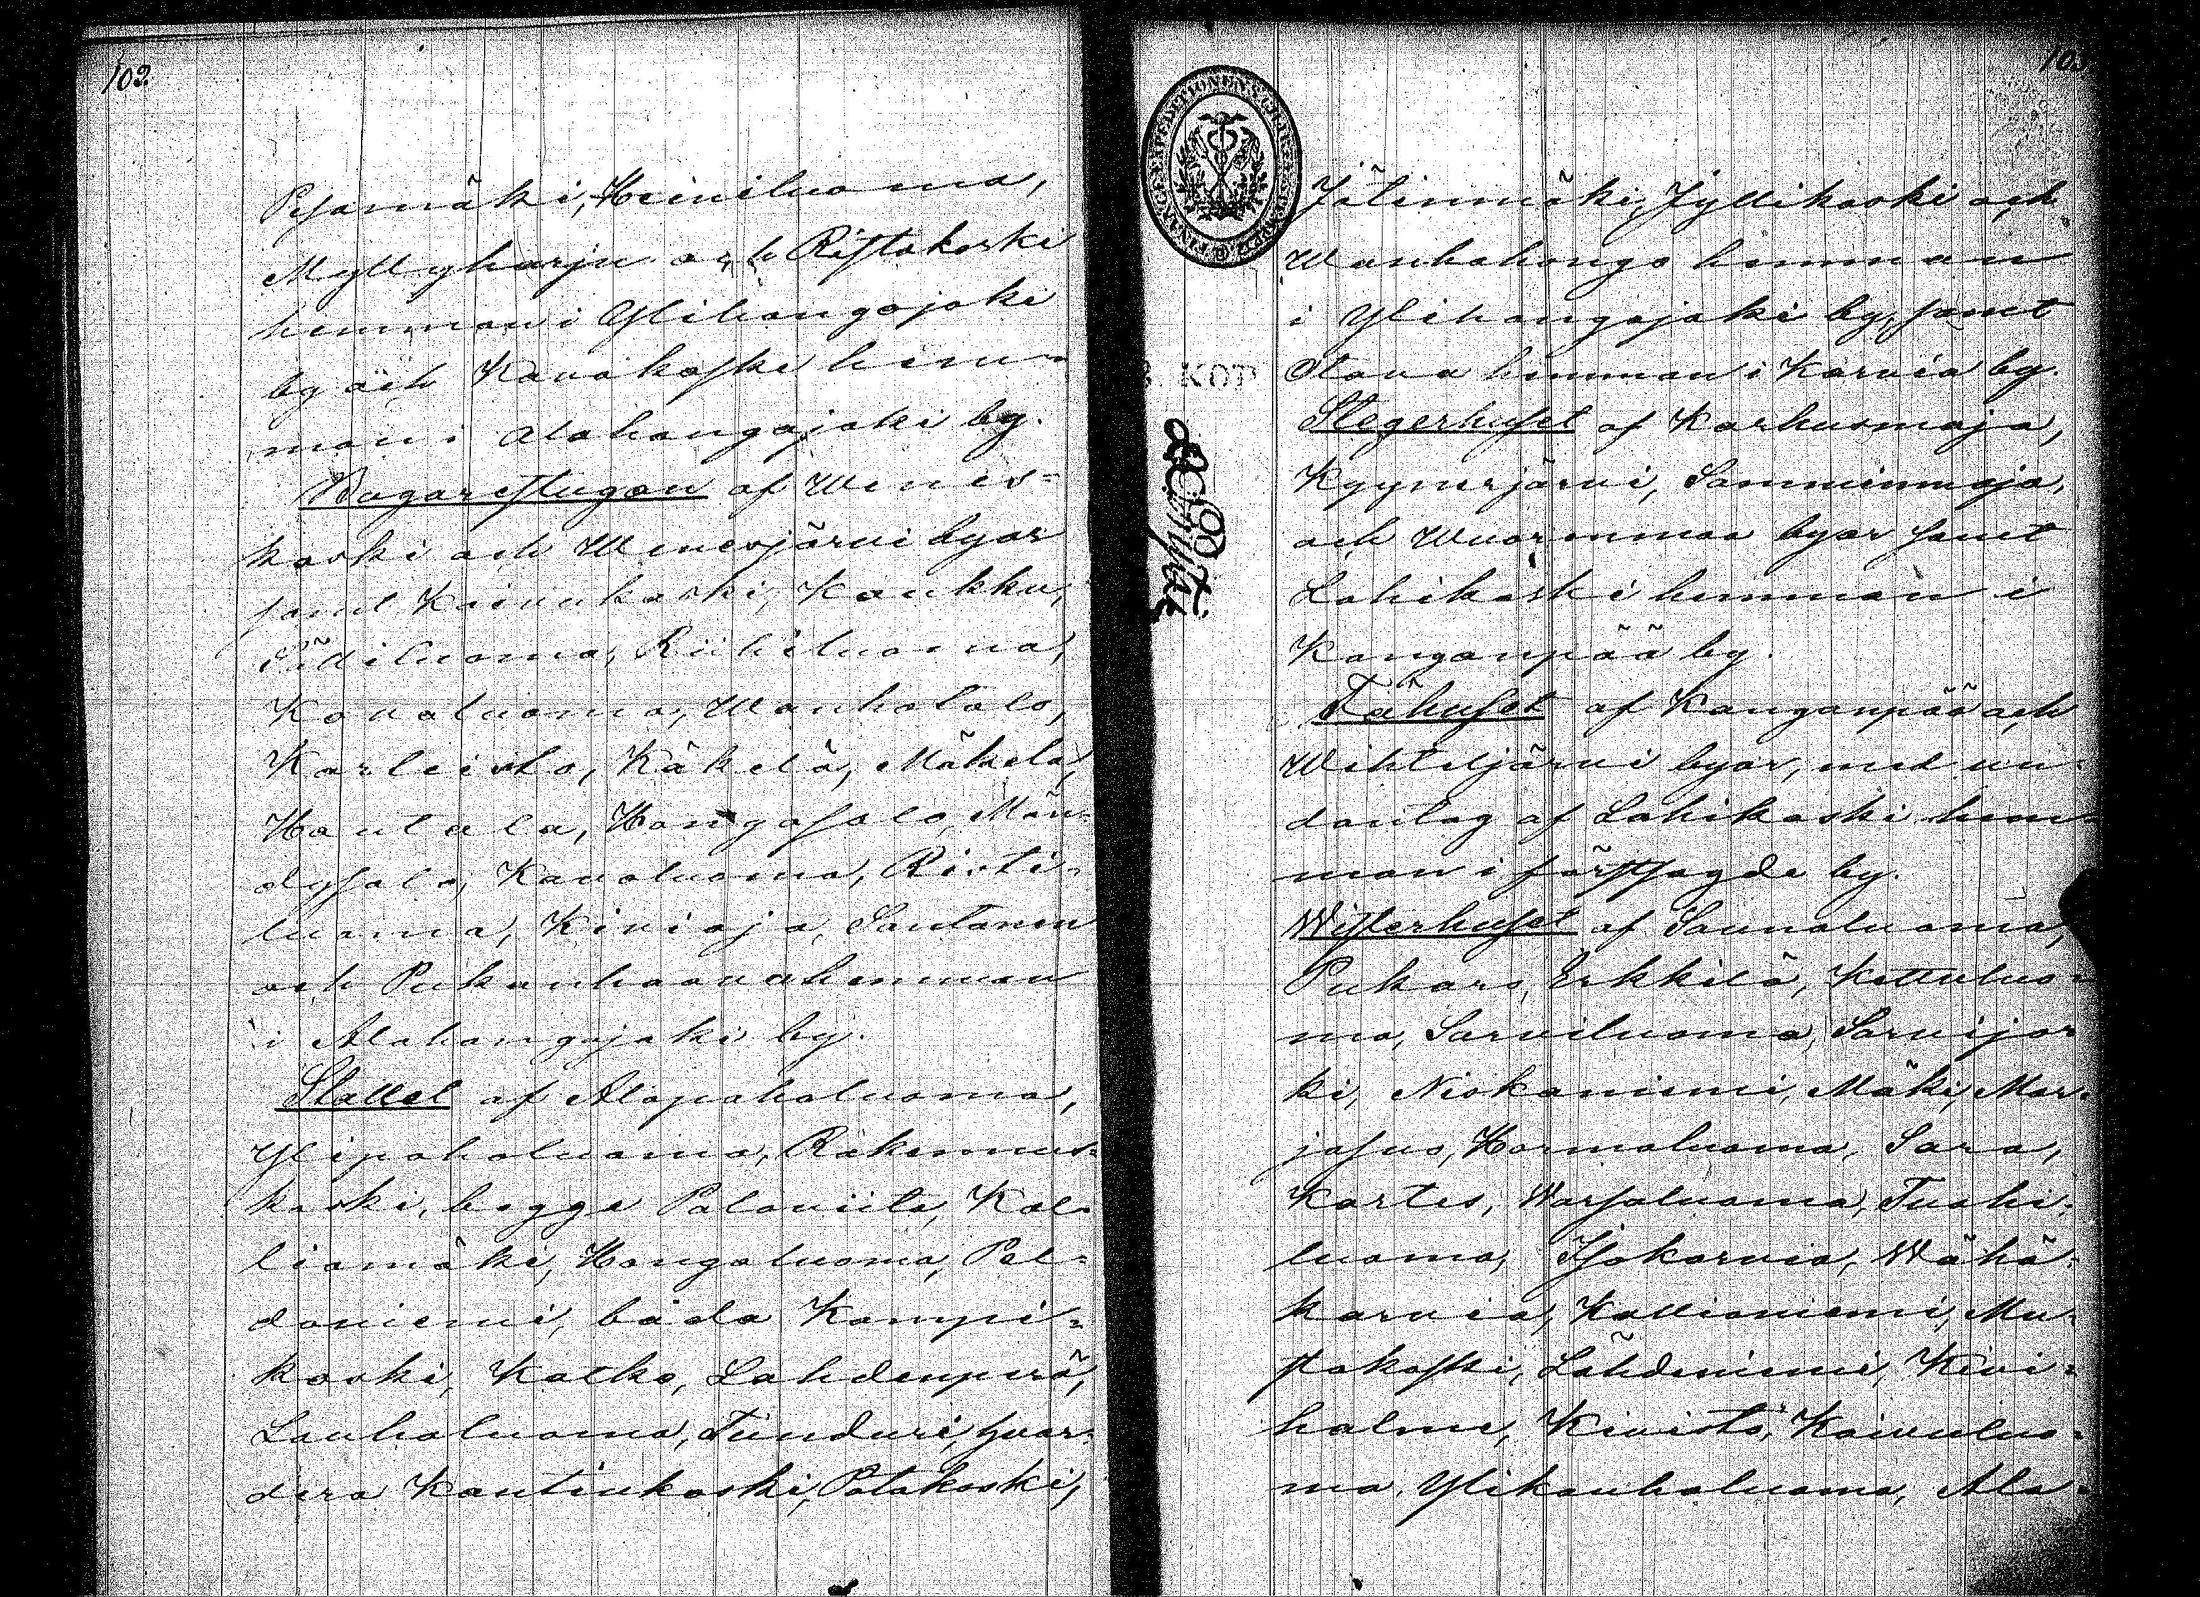 102
Pesämäki, Heiniluoma,
Myllyharju och Ristakoski
hemman i Ylihongojoki
by och Kavokoski hem-
man i Alahongojoki by.
Bagarestugan af Wenes-
koski och Wenesjärvi byar
samt Koivukoski, Kaukku,
Riihiluoma,
Kovaluoma, Wanhatalo,
Karleisto, Käkelä, Mäkelä,
Hautala, Hongasalo, Män-
dysalo, Kavaluoma, Risti-
luoma, Kivioja, Santanen
och Pukanhaava hemman
i Alahongojoki by.
Stallet af Alapaholuoma,
Ylipaholuoma, Rakennus-
koski, begge Palaviita, Kal-
liomäki, Hongaluoma, Pel-
doniemi, båda Kampi-
koski, Katko, Lahdenperä,
Lauhaluoma, Tunduri, hvar-
dera Kantinkoski, Patakoski,
103
Jätinmäki, Jyllikoski och
Wanhahongo hemman
i Ylihongojoki by, samt
Otava hemman i Karvia by.
Stegerhuset af Karhusmaja,
Kyynerjärvi, Samminmaja,
och Wuorenmaa byar samt
Lohikoski hemman i
Kanganpää by.
Fähuset af Kanganpää och
Wihteljärvi byar, med un-
dantag af Lohikoski hem-
man i förstsagde by.
Wisterhuset af Saunaluoma,
Pukaro, Erkkilä, Kettuluo-
ma, Sarviluoma, Sarvijo-
ki, Niskaniemi, Mäki, Mar-
jasuo, Hormaluoma, Sara,
Kartes, Warsaluoma, Tuohi-
luoma, Isokarvia, Wähä-
karvia, Kallioniemi, Mu-
stakoski, Lähdeniemi, Kivi-
halme, Kivistö, Koivuluo-
ma, Ylikauhaluoma, Ala-